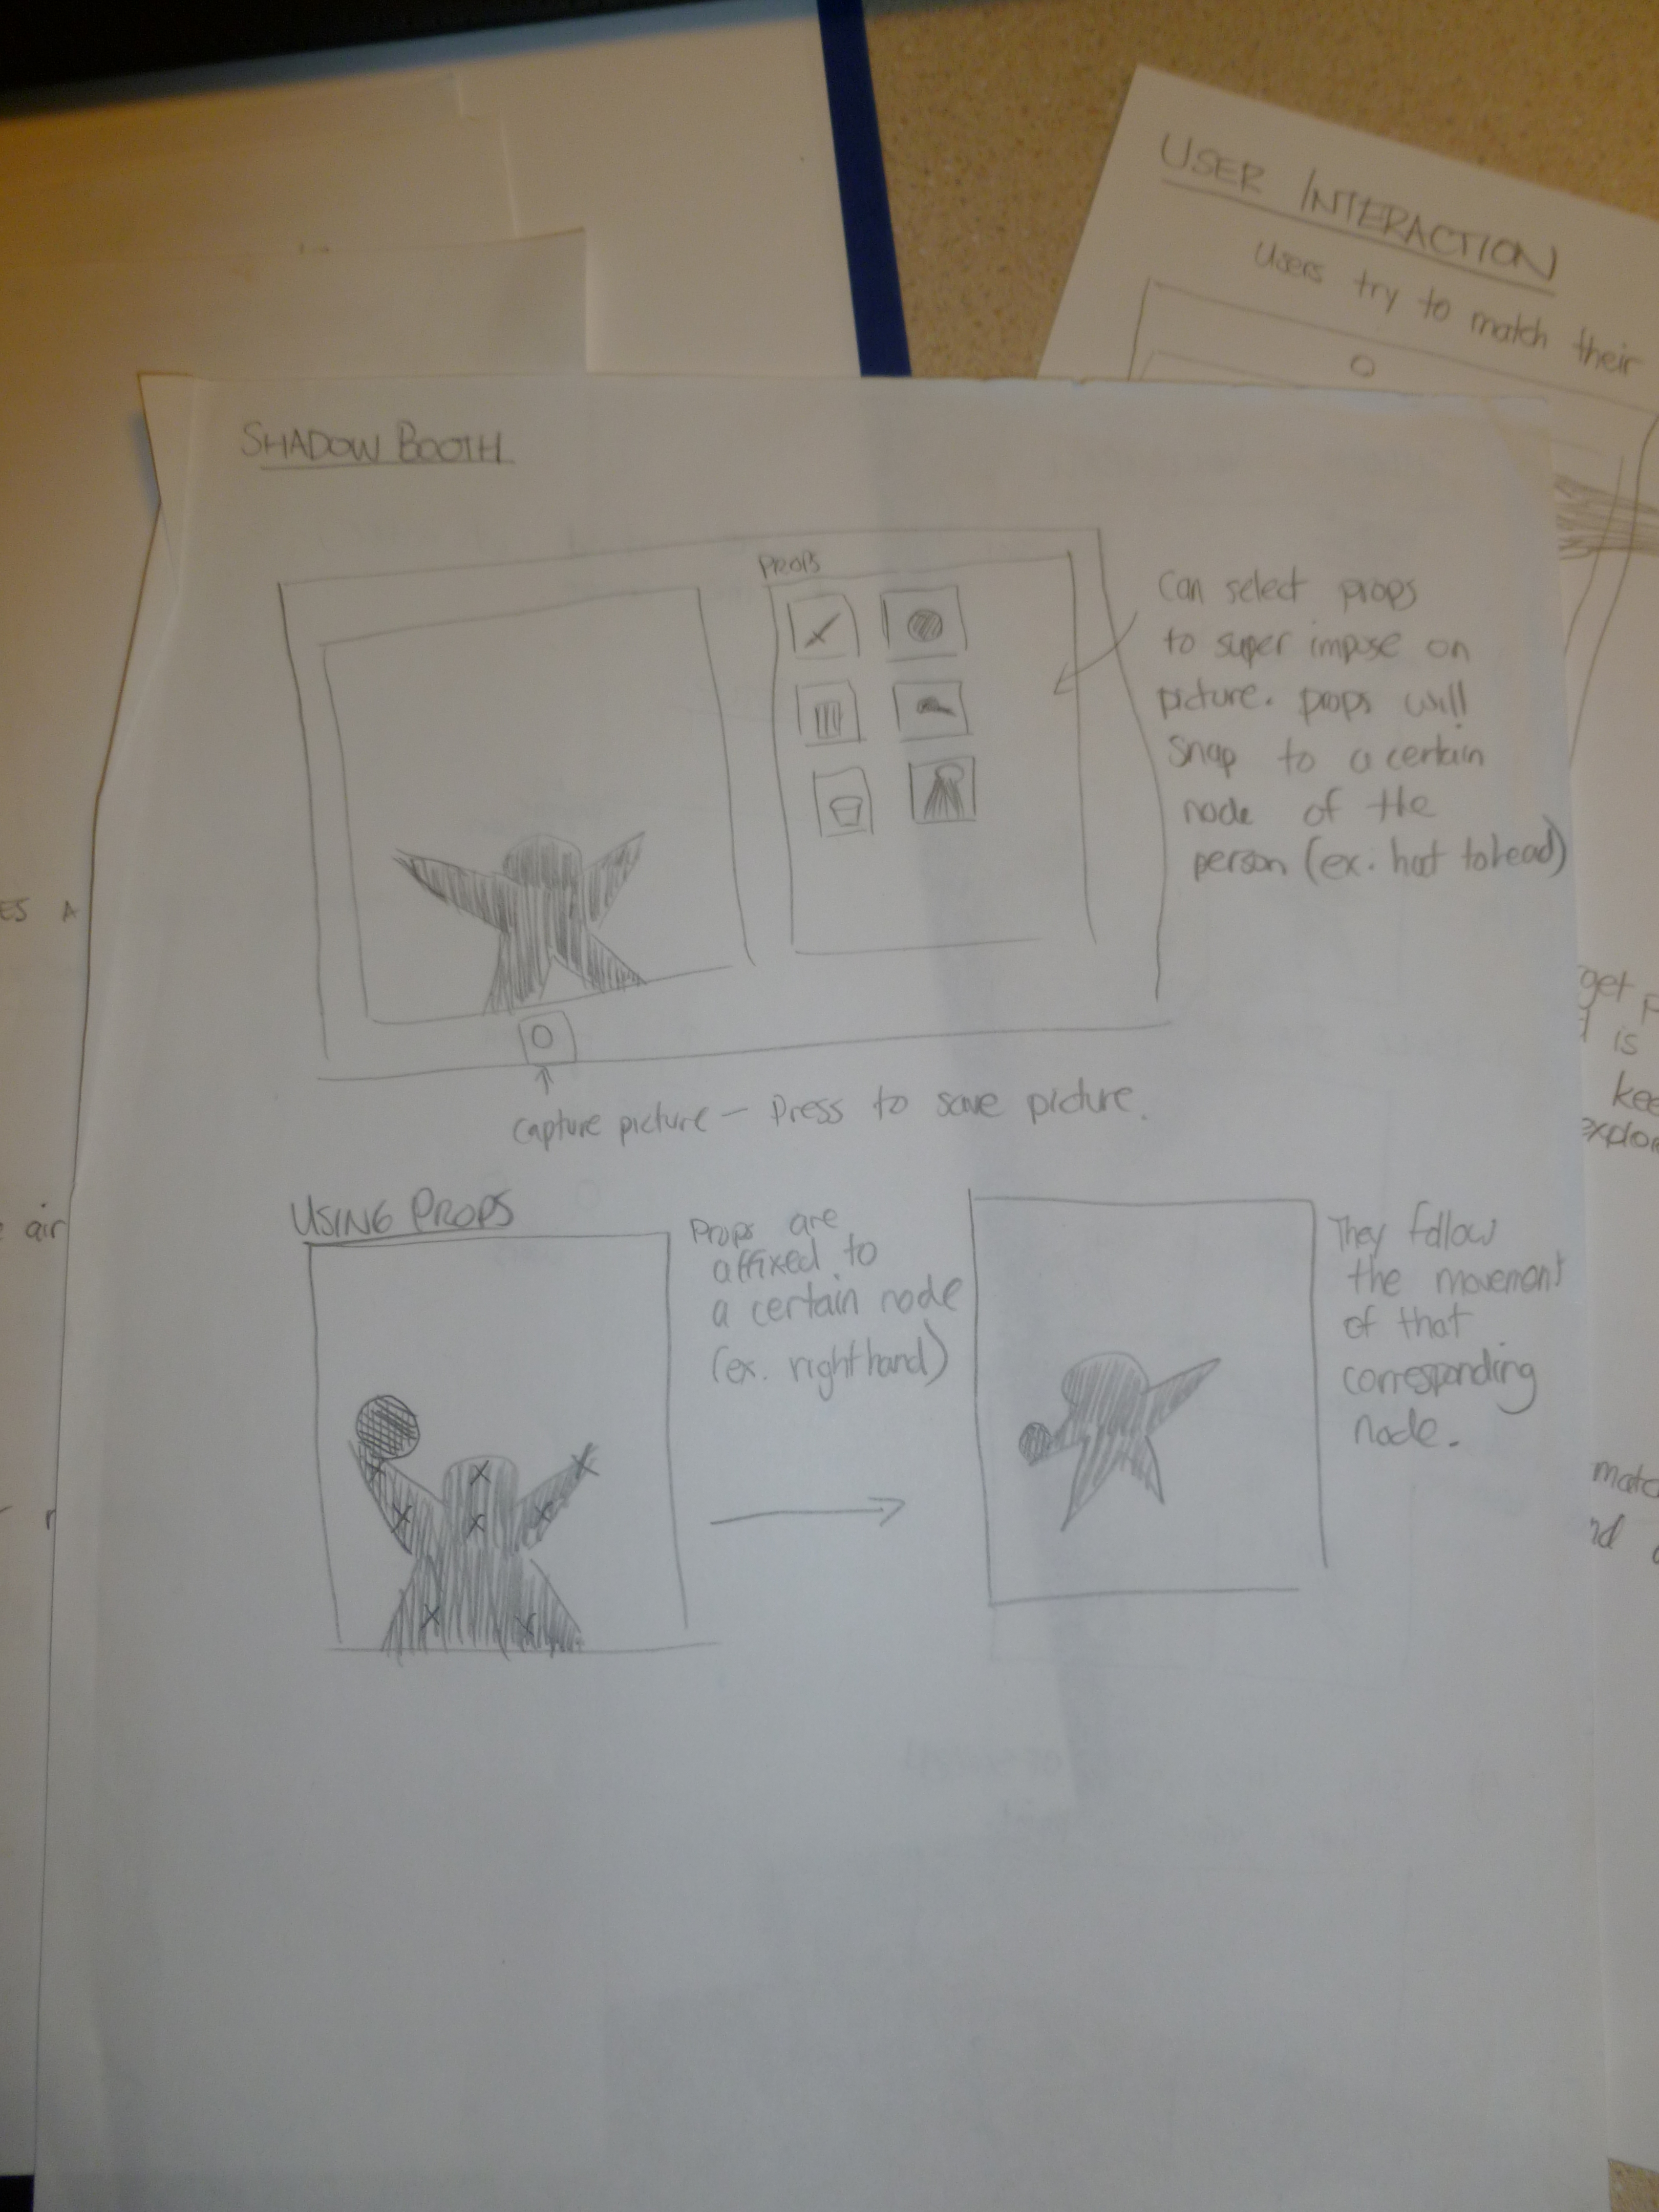 USER INTERACTION
Users try to match their
SHADOW BOOTH
PROPS
Can select props
to super impose on
picture. props will
snap to a certain
node of the
person (ex. hat to head)
capture picture — Press to save picture.
USING PROPS
Props are
affixed to
a certain node
(ex. right hand)
They follow
the movement
of that
corresponding
node.
ES A
air
get
is